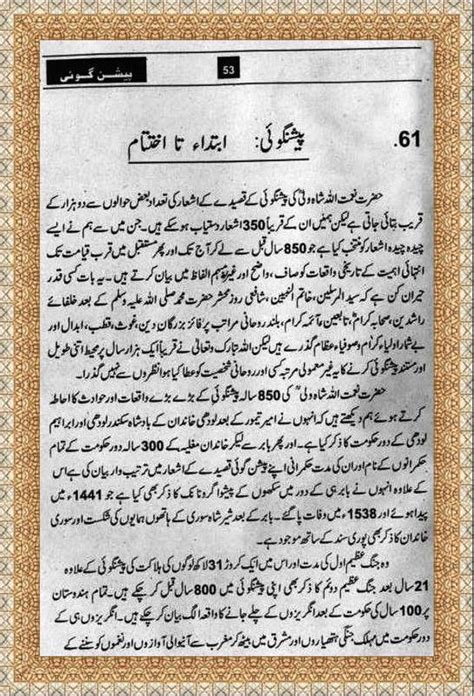 پیشن گوئی
53
61. پیشنگوئی: ابتداء تا اختتام
حضرت نعمت اللہ شاہ ولیؒ کی پیشنگوئی کے قصیدے کے اشعار کی تعداد بعض حوالوں سے دو ہزار کے
قریب بتائی جاتی ہے لیکن ہمیں ان کے قریباً 350 اشعار دستیاب ہو سکے ہیں۔ جن میں سے ہم نے ایسے
چیدہ چیدہ اشعار کو منتخب کیا ہے جو 850 سال قبل سے لے کر آج تک اور پھر مستقبل میں قرب قیامت تک
انتہائی اہمیت کے تاریخی واقعات کو صاف، واضح اور غیر مبہم الفاظ میں بیان کرتے ہیں۔ یہ بات کسی قدر
حیران کن ہے کہ سید المرسلین، خاتم النبیین، شافعی روز محشر حضرت محمد صلی اللہ علیہ وسلم کے بعد خلفائے
راشدین، صحابہ کرامؓ، تابعین، آئمہ کرام، بلند روحانی مراتب پر فائز بزرگان دین، غوث، قطب، ابدال اور
بے شمار اولیاء کرام و صوفیاء عظام گذرے ہیں۔ لیکن اللہ تبارک وتعالیٰ نے قریباً ایک ہزار سال پر محیط اتنی طویل
اور مستند پیشنگوئی کرنے کا یہ غیر معمولی مرتبہ کسی اور روحانی شخصیت کو عطا کیا ہوا نظروں سے نہیں گذرا۔
حضرت نعمت اللہ شاہ ولیؒ کی 850 سالہ پیشنگوئی کے بڑے بڑے واقعات اور حوادث کا احاطہ
کرتے ہوئے ہم دیکھتے ہیں کہ انہوں نے امیر تیمور کے بعد لودھی خاندان کے بادشاہ سکندر لودھی اور ابراہیم
لودھی کے دور حکومت کا ذکر کیا ہے۔ اور پھر بابر سے لیکر خاندان مغلیہ کے 300 سالہ دور حکومت کے تمام
حکمرانوں کے نام اور ان کی مدت حکمرانی اپنے پیشن گوئی قصیدے کے اشعار میں ترتیب وار بیان کی ہے اس
کے علاوہ انہوں نے بابر ہی کے دور میں سکھوں کے پیشوا گرو نانک کا ذکر بھی کیا ہے جو 1441ء میں
پیدا ہوئے اور 1538ء میں وفات پا گئے۔ بابر کے بعد شیر شاہ سوری کے ہاتھوں ہمایوں کی شکست اور سوری
خاندان کا ذکر بھی پوری سند کے ساتھ موجود ہے۔
وہ جنگ عظیم اول کی مدت اور اس میں ایک کروڑ 31 لاکھ لوگوں کی ہلاکت کی پیشنگوئی کے علاوہ
21 سال بعد جنگ عظیم دوئم کا ذکر بھی اپنی پیشنگوئی میں 800 سال قبل کر چکے ہیں۔ تمام ہندوستان
پر 100 سال کی حکومت کے بعد انگریزوں کے چلے جانے کا واقعہ الگ بیان کر چکے ہیں۔ انگریزوں ہی کے
دور حکومت میں مہلک جنگی ہتھیاروں اور مشرق میں بیٹھ کر مغرب سے آنیوالی آوازوں اور نغموں کو سننے کے